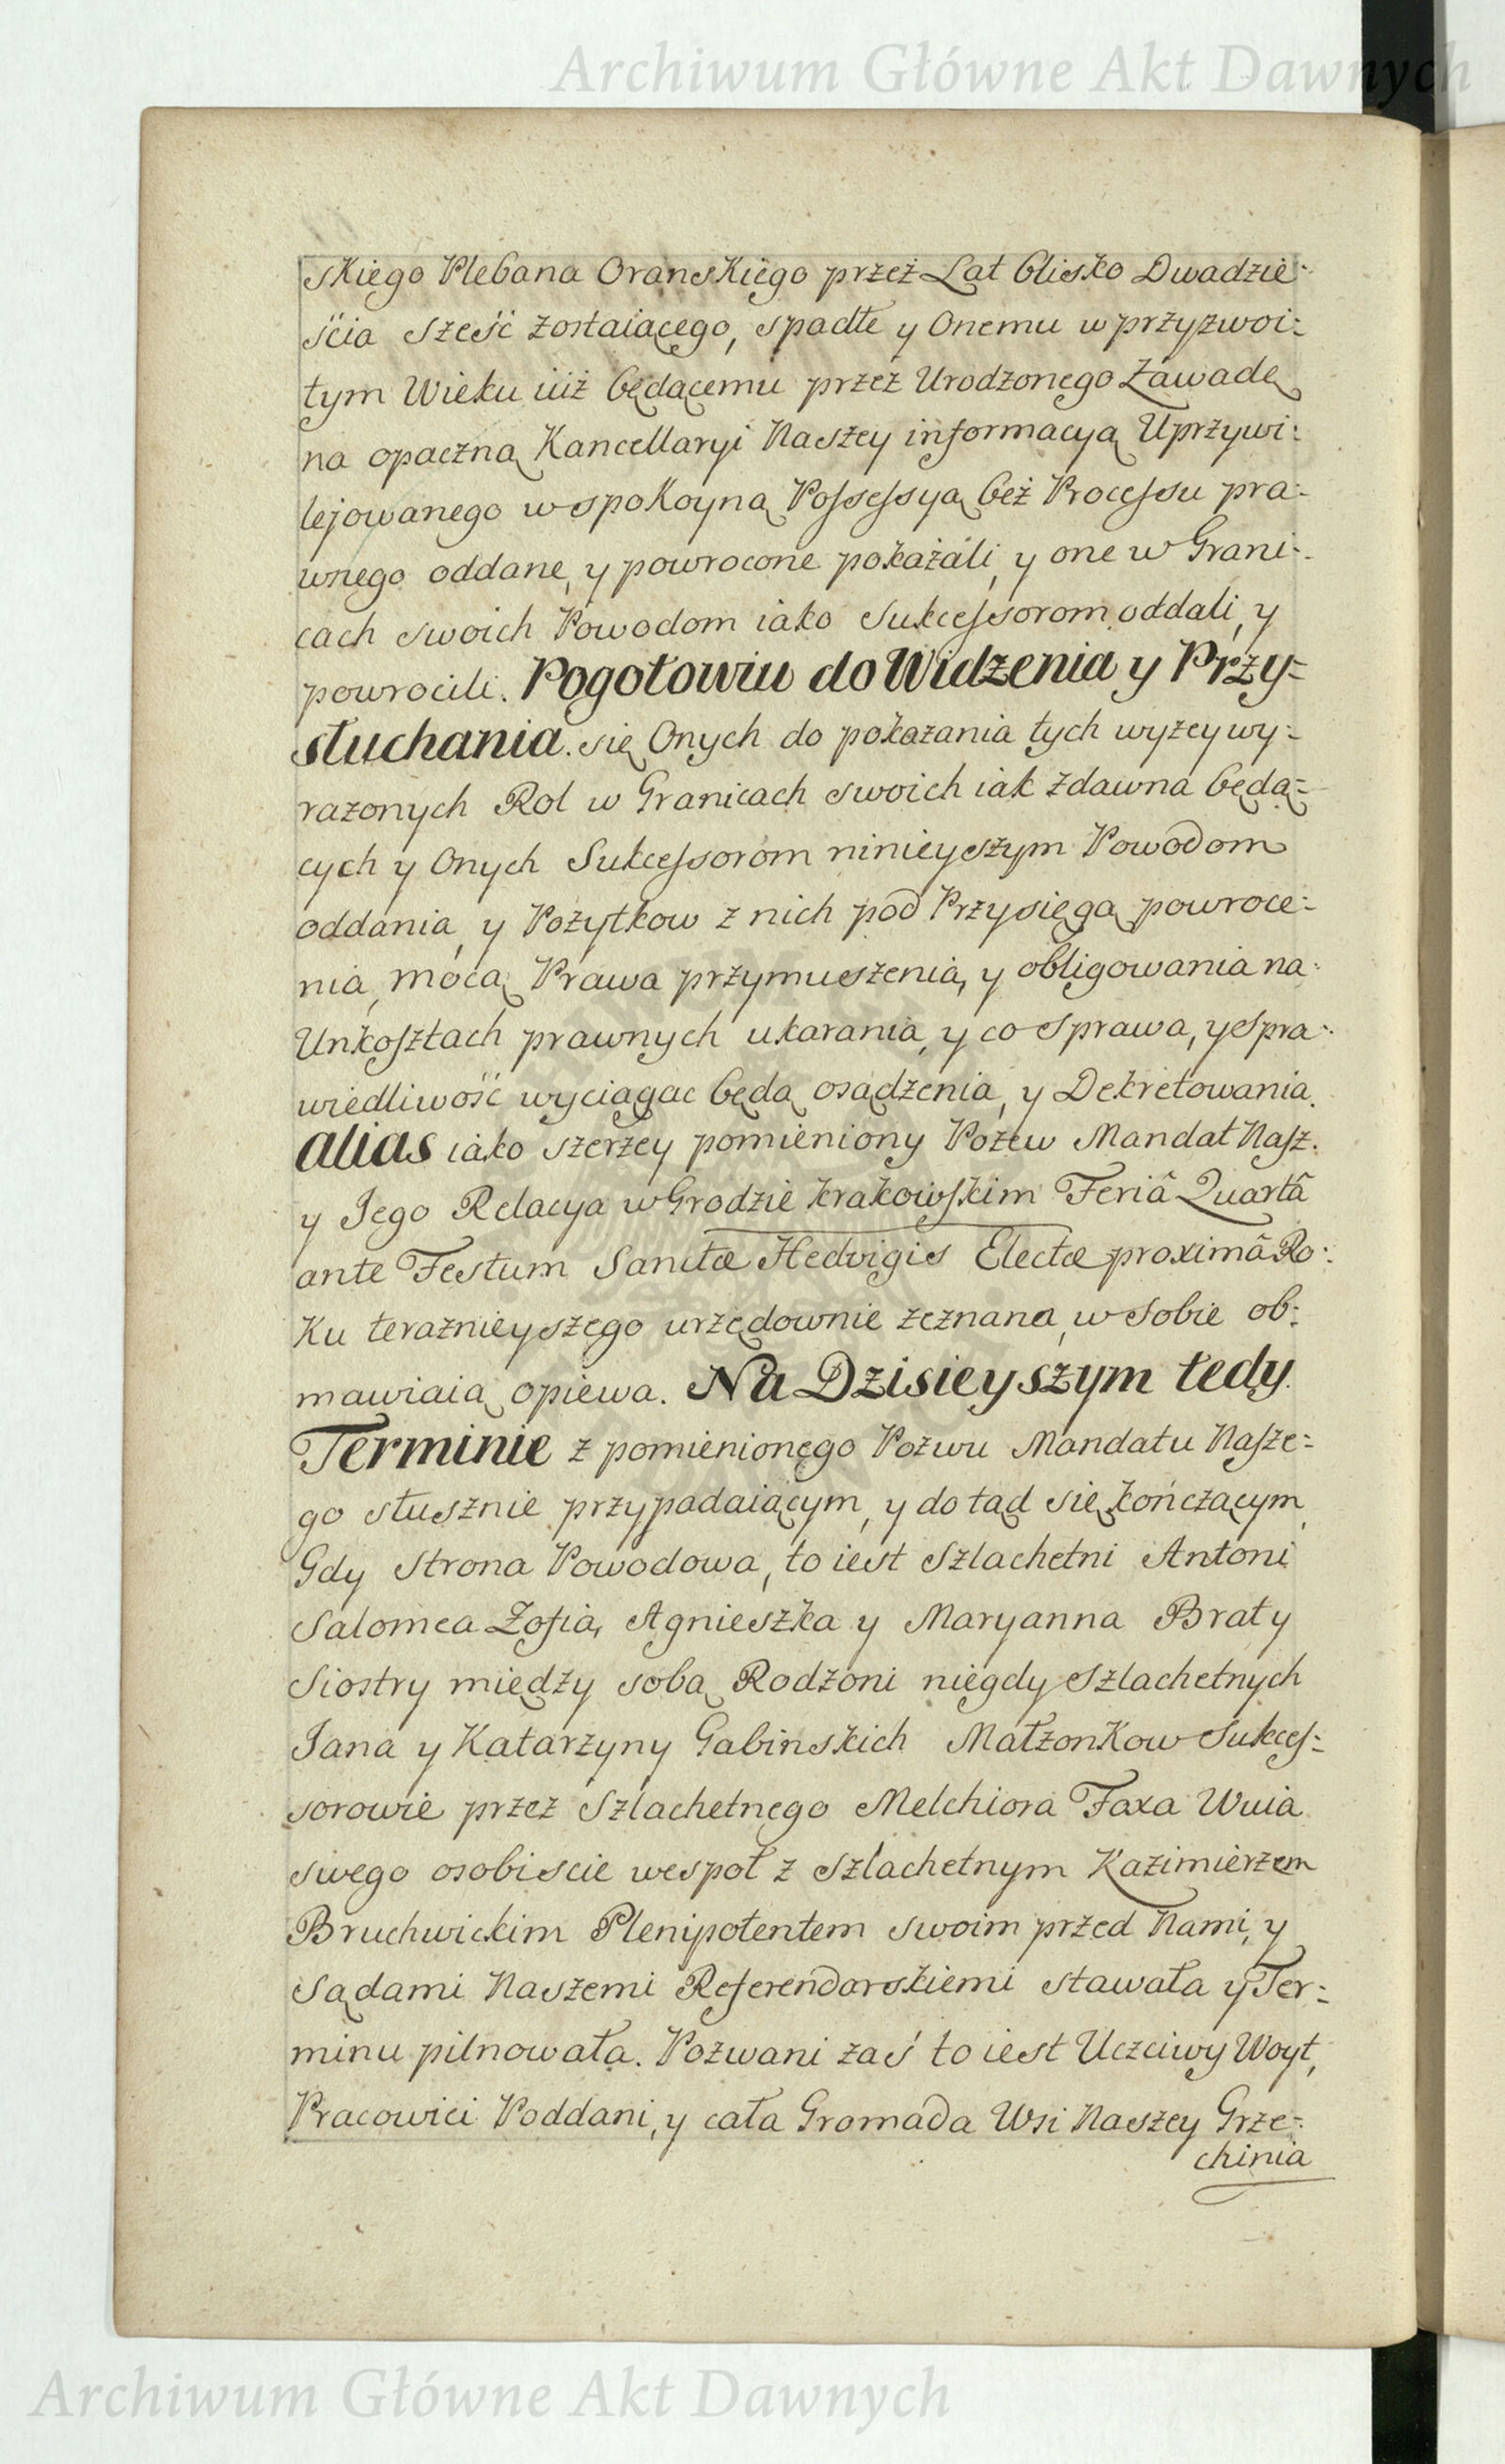 Archiwum Główne Akt Dawnych
skiego Plebana Oranskiego przeż Lat blisko Dwadzie:
ścia sześć żostaiącego, spadłe y Onemu w przyzwoi:
tym Wieku iuż będącemu przeż Urodżonego Żawadę
na opaczną Kancellaryi Naszey informacyą Uprzywi:
lejowanego w spokoyną Possessyą beż Processu pra:
wnego oddane, y powrocone pokażali, y one w Grani:
cach swoich Powodom iako Sukcessorom oddali, y
powrocili. Pogotowiu do Widzenia y Przy=
słuchania. się Onych do pokazania tych wyżey wy:
rażonych Rol w Granicach swoich iak żdawna będą=
cych y Onych Sukcessorom ninieyszym Powodom
oddania, y Pożytkow z nich pod Przysięgą powroce:
nia, mocą Prawa przymuszenia, y obligowania na:
Unkosztach prawnych ukarania, y co sprawa, y spra:
wiedliwość wyciągac będą osądżenia, y Dekretowania.
Alias iako szerzey pomieniony Pożew Mandat Nasz.
y Jego Relacya w Grodzie krakowskim Feriâ Quartâ
ante Festum Sanctæ Hedvigis Electæ proximâ Ro:
ku terażnieyszego urzędownie żeżnana, w sobie ob:
mawiaią opiewa. Na Dzisieyszym tedy
Terminie z pomienionego Pożwu Mandatu Nasze:
go słusznie przypadaiącym, y do tąd się kończącym,
Gdy Strona Powodowa, to iest Szlachetni Antoni
Salomea Zofia, Agnieszka y Maryanna Braty
Siostry między sobą Rodżoni niegdy Szlachetnych
Jana y Katarżyny Gabinskich Małżonkow Sukces:
sorowie przeż Szlachetnego Melchiora Faxa Wuia
swego osobiscie wespoł z Szlachetnym Kazimierzem
Bruchwickim Plenipotentem swoim przed Nami, y
Sądami Naszemi Referendarskiemi stawała y Ter:
minu pilnowała. Pozwani zaś to iest Uczciwy Woyt,
Pracowici Poddani, y cała Gromada Wsi Naszey Grze:
chinia
Archiwum Główne Akt Dawnych